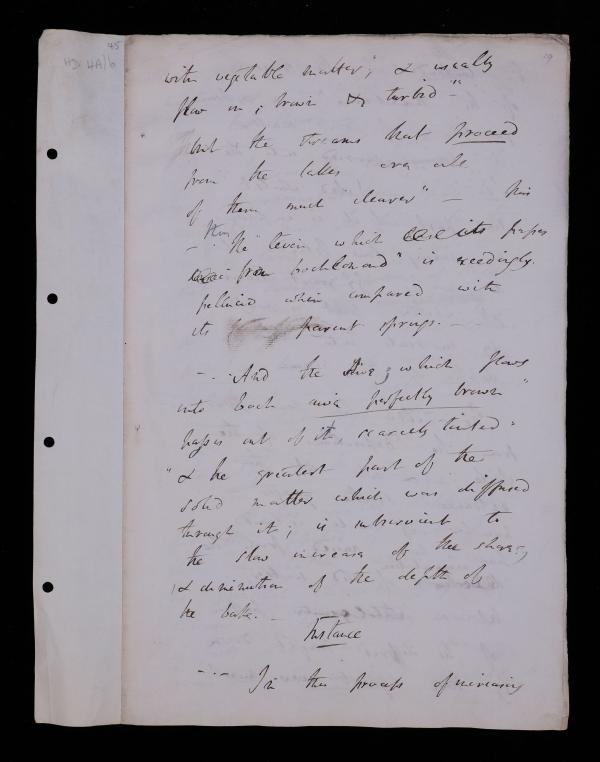 45
HD. 4A/6
19
with vegetable matter", & usually
flow in, brown & turbid "
but the streams that proceed
from the lakes are all
of them much clearer" — this
— Thus "The leven which its passes
from Lochlomond" is exceedingly
pellucid when compared with
its parent springs. —
— And the river, which flows
into Loch awe perfectly brown"
passes out of it, scarcely tinted "
" & the greatest part of the
solid matter which was diffused
through it; is subservient to
the slow increase of the shores,
& diminution of the depth of
the lake. —
Instance
— In this process of increasing